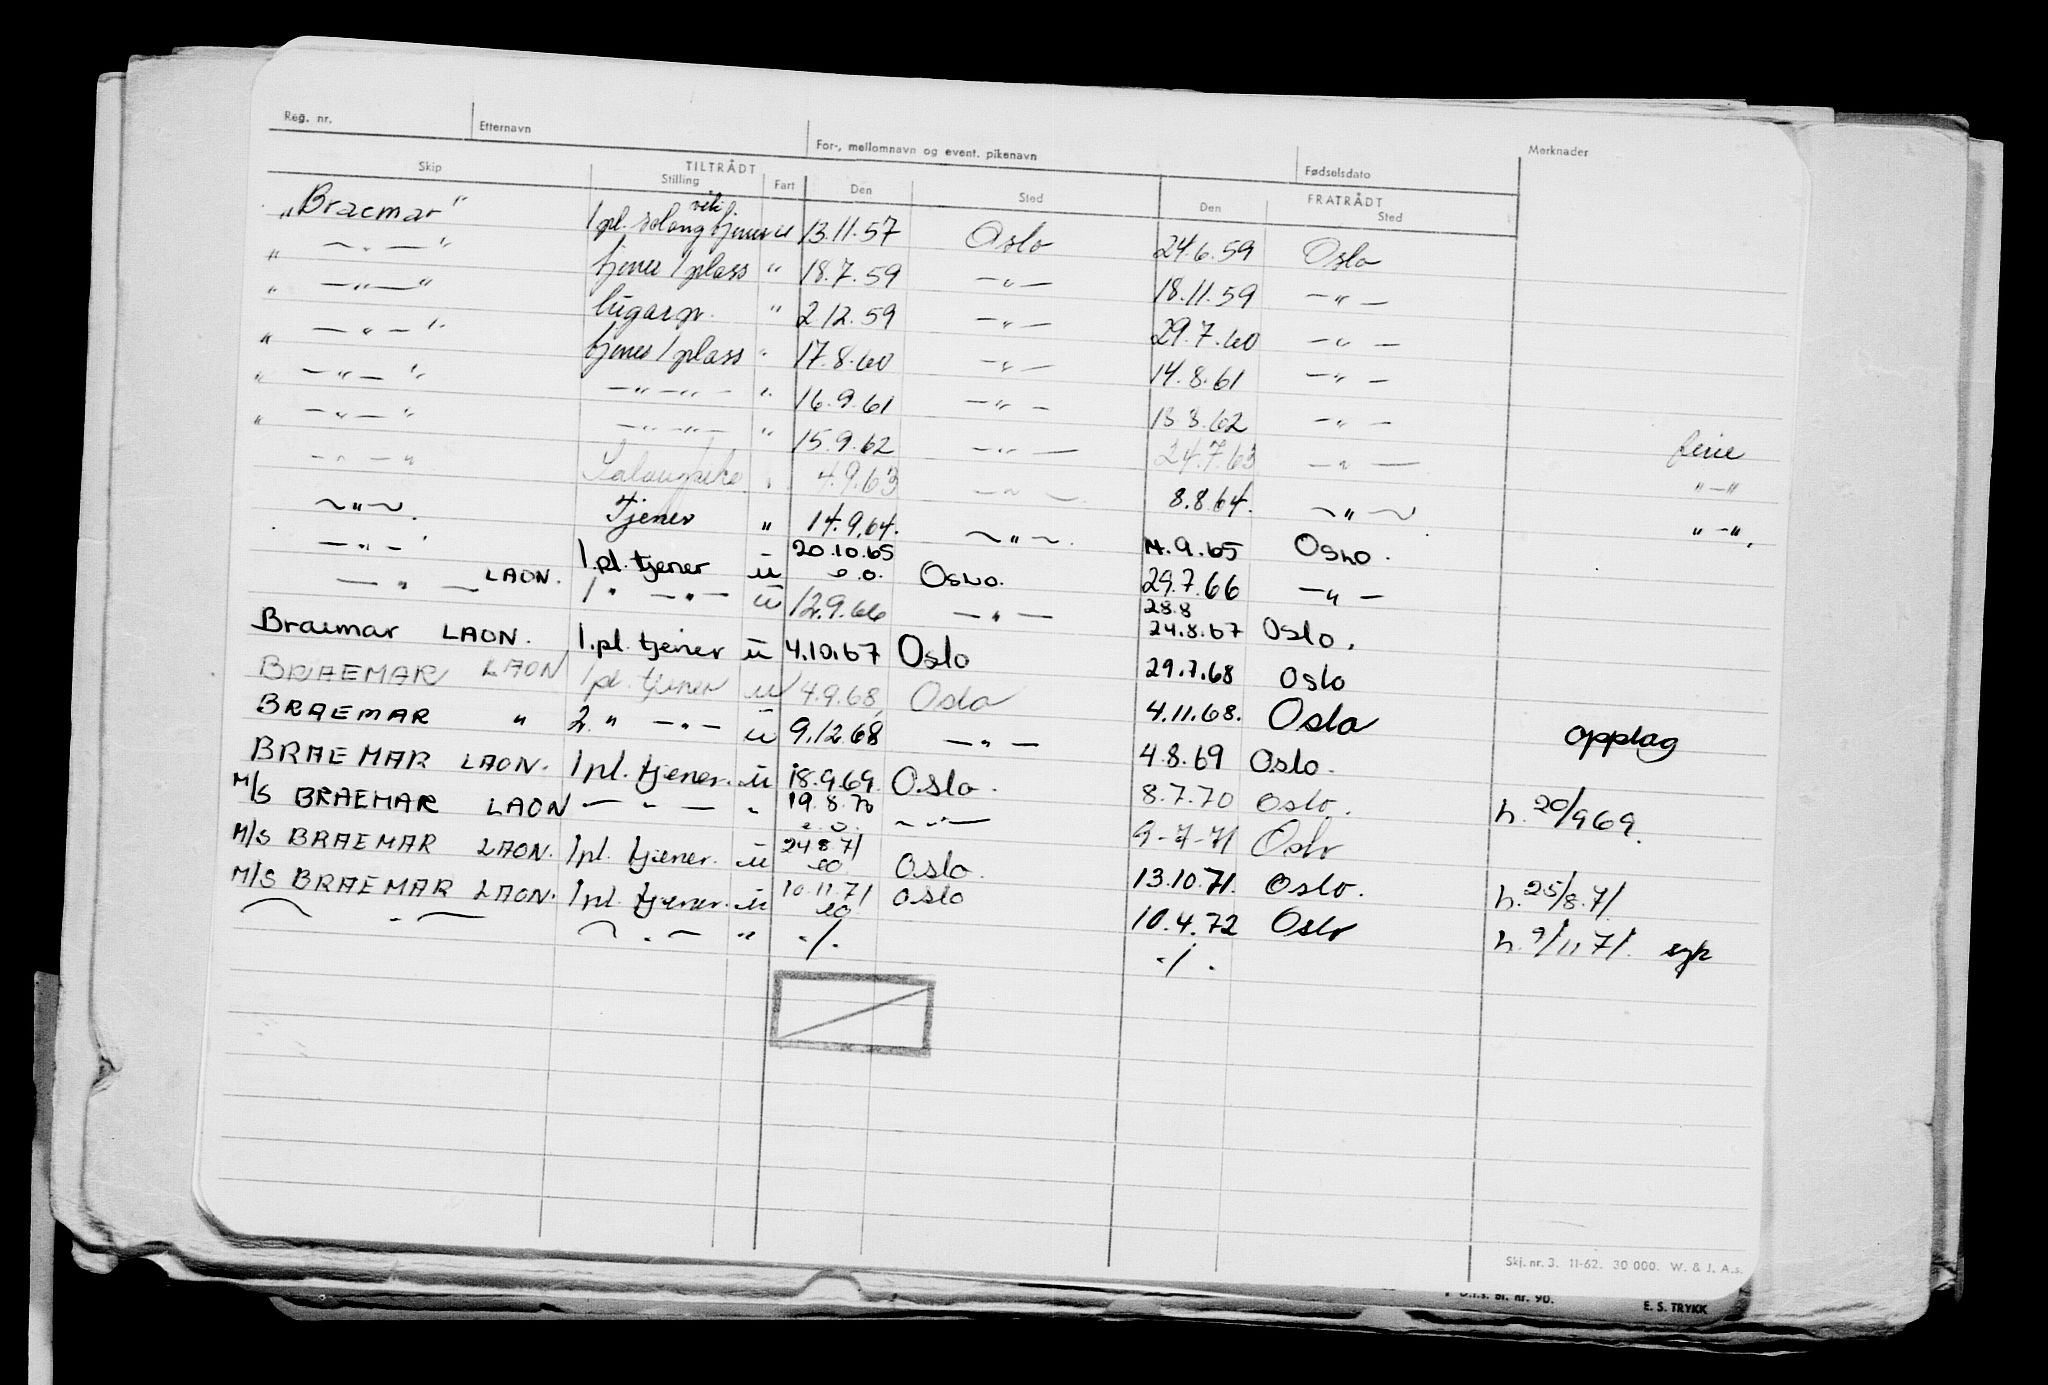 Reg. nr. Etternavn For-, mellomnavn og event. pikenavn Fødselsdato Merknader
TILTRÅDT FRATRÅDT
Skip Stilling Fart Den Sted Den Sted
"Braemar" 1 pl. salong vik tjener u 13.11.57 Oslo 24.6.59 Oslo
" — " — " tjener 1 plass " 18.7.59 — " — 18.11.59 — " —
" — " — " lugarp. " 2.12.59 — " — 29.7.60 — " —
" — " — " tjener 1 plass " 17.8.60 — " — 14.8.61 — " —
" — " — " — " — " — " 16.9.61 — " — 13.8.62 — " —
" — " — " — " — " — " 15.9.62 — " — 24.7.63 — " — ferie
— " — " Salongpike " 4.9.63 — " — 8.8.64. — " — " — "
— " — . Tjener " 14.9.64. — " — . 14.9.65 Oslo. " — ".
— " — 1 pl. tjener u 20.10.65 e.o. Oslo. 29.7.66 — " —
— " — LAON. 1 " — " — u 12.9.66 — " — 28.8 24.8.67 Oslo.
Braemar LAON. 1.pl. tjener u 4.10.67 Oslo 29.7.68 Oslo
BRAEMAR LAON 1 pl. tjener u 4.9.68 Oslo 4.11.68. Oslo opplag
BRAEMAR " 2. " — " — u 9.12.68 — " — 4.8.69 Oslo.
BRAEMAR LAON. 1 pl. tjener. u 18.9.69. Oslo. 8.7.70 Oslo. h. 20/9 69.
M/S BRAEMAR LAON — " — " 19.8.70 e.o. — " — 9-7-71 Oslo
M/S BRAEMAR LAON. 1 pl. tjener. u 24 8 71 eo Oslo. 13.10.71. Oslo. h. 25/8.71
M/S BRAEMAR LAON. 1 pl. tjener. u 10.11.71 eo Oslo 10.4.72 Oslo h. 9/11 71. syk
— " — — " — " ./. ./.
Skj. nr. 3. 11-62. 30 000. W. & J. A.s.
nr. 90. E. S. TRYKK